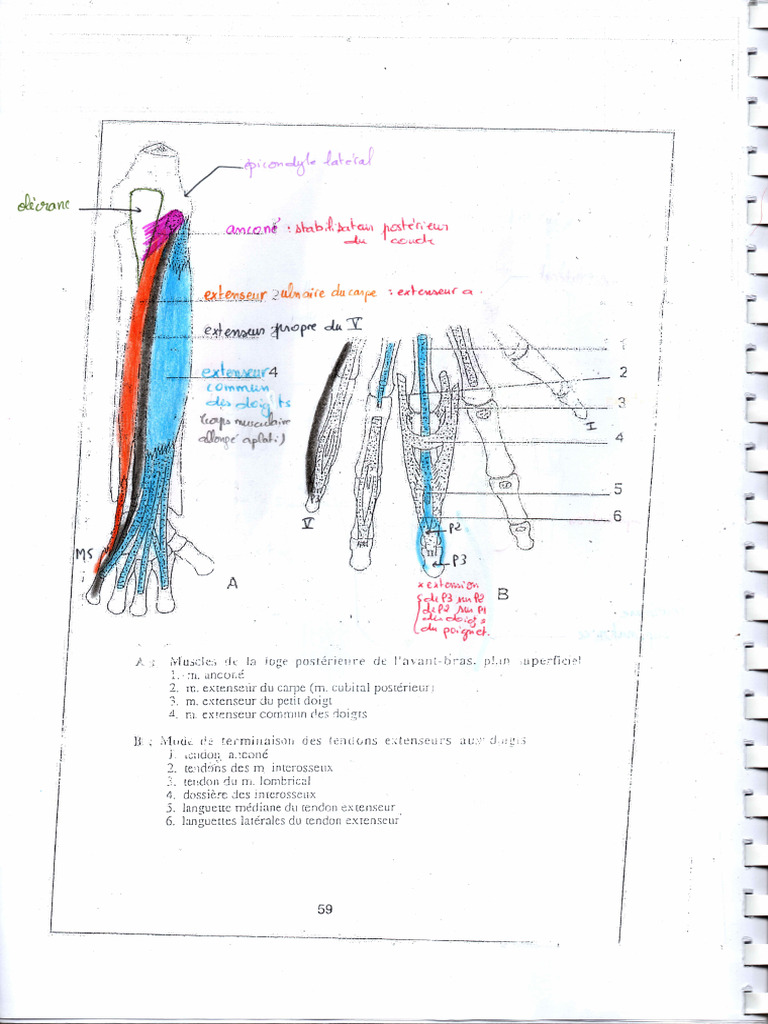 épicondyle latéral
olécrane
anconé : stabilisateur postérieur
du coude
extenseur 2 ulnaire du carpe : extenseur a
extenseur propre du V
extenseur 4
commun
des doigts
(corps musculaire
allongé aplati)
1
2
3
4
5
6
I
V
P2
P3
M5
A
B
* extension
de P3 sur P2
de P2 sur P1
des doigts
du poignet.
A : Muscles de la loge postérieure de l'avant-bras, plan superficiel
1. m. anconé
2. m. extenseur du carpe (m. cubital postérieur)
3. m. extenseur du petit doigt
4. m. extenseur commun des doigts
B : Mode de terminaison des tendons extenseurs aux doigts
1. tendon anconé
2. tendons des m. interosseux
3. tendon du m. lombrical
4. dossière des interosseux
5. languette médiane du tendon extenseur
6. languettes latérales du tendon extenseur
59